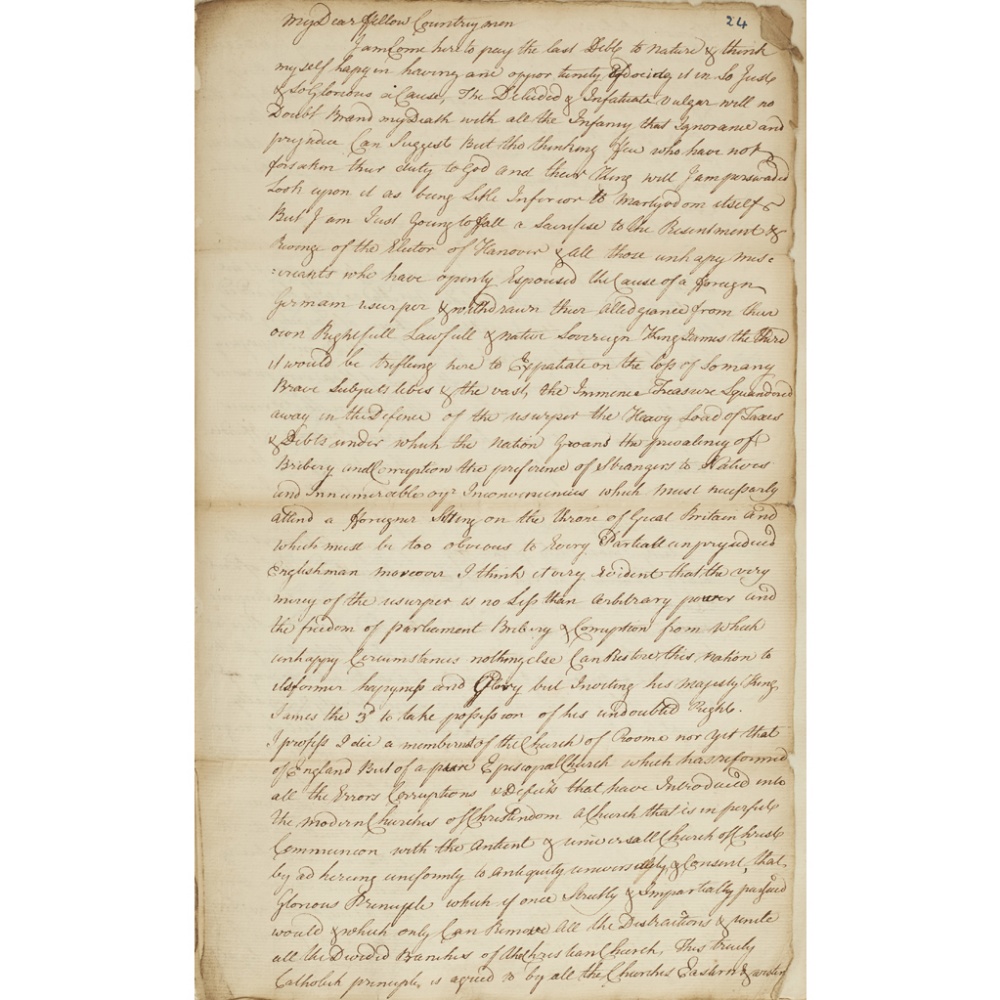 My Dear ffellow Countrymen 24
I am Come here to pay the last Debt to nature & think
my self hapy in having ane oppor tunity of doeing it in So Just
& So Glorious a Cause, The Deluded & Infatuate vulgar will no
Doubt Brand my Death with all the Infamy that Ignorance and
prejudice Can Suggest But the thinking ffew who have not
forsaken their duty to God and their King will I am perswaded
Look upon it as being Litle Inferior to Martyrdom itself
But I am Just Going to ffall a Sacrifice to the Resentment &
Revenge of the Elector of Hanover & All those unhapy mis=
=creants who have openly Espoused the Cause of a fforeign
Germam usurper & withdrawn their alledgiance from their
own Rightfull Lawfull & native Sovereign King James the third
it would be trifleing here to Expatiate on the loss of So many
Brave Subjects lives & the vast, the Immence Treasure Squandored
away in the Defence of the usurper the Heavy Load of Taxes
& Debts under which the Nation Groans the prevalency of
Bribery and Corruption the preference of Strangers to Natives
and Innumerable oyr Inconveniencies which must necessarly
attend a fforeigner Sitting on the throne of Great Britain and
which must be too obvious to Every Partiall unprejudiced
Englishman moreover I think it very Evident that the very
mercy of the usurper is no Less than Arbitrary power and
the freedom of parliament Bribery & Corruption from which
unhappy Circumstances nothing else Can Restore this Nation to
its former hapyness and Glory but Inviting his Majesty King
James the 3d to take possession of his undoubted Right.
I profess I die a member not of the Church of Roome nor yet that
of England But of a pure Episcopal Church which has reformed
all the Errors Corruptions & Defects that have Introduced into
the modern Churches of Christendom a Church that is in perfect
Communion with the Antient & universall Church of Christ
by ad hering uniformly to Antiquity universality & Consent, that
Glorious Principle which if once Strictly & Impartially pursued
would & which only Can Remove All the Distractions & unite
all the Divided Branches of the Christian Church, This truely
Catholick principle, is agreed to by all the Churches Eastern & western